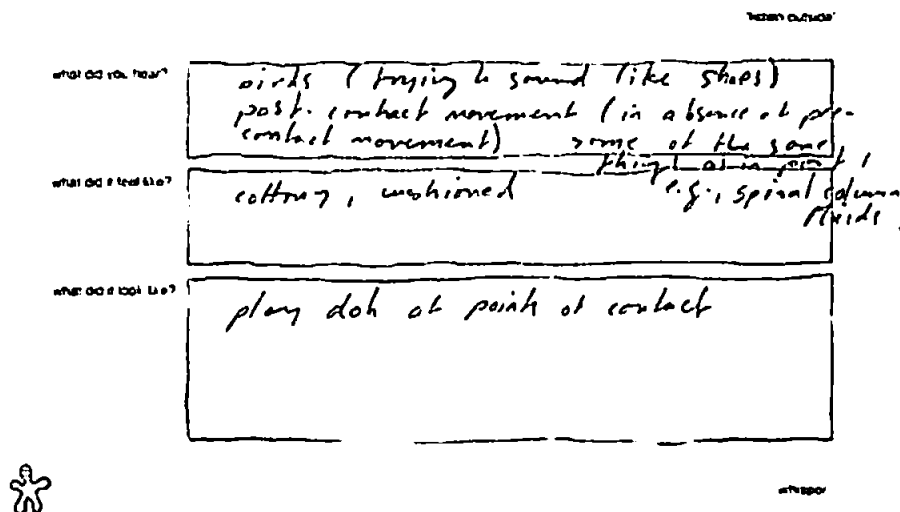 'listen outside'
what did you hear?
birds (trying to sound like shoes)
post-contact movement (in absence of pre-
contact movement) some of the same
things as in part 1
what did it feel like?
cottony, cushioned e.g., spinal column
fluids
what did it look like?
play doh at points of contact
whisper